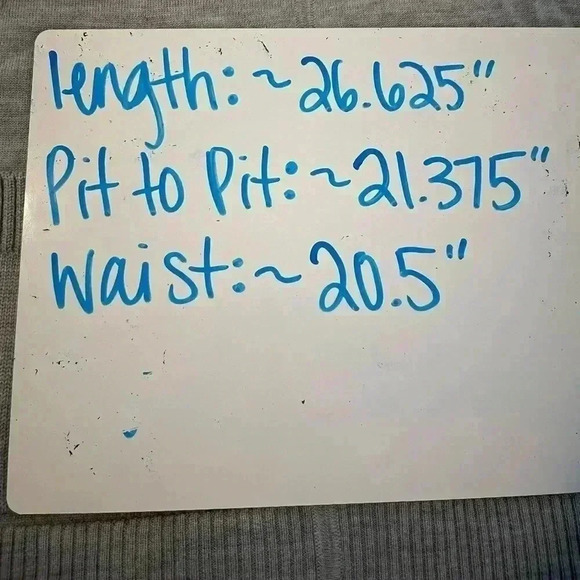 length: ~26.625"
Pit to Pit: ~21.375"
Waist: ~20.5"